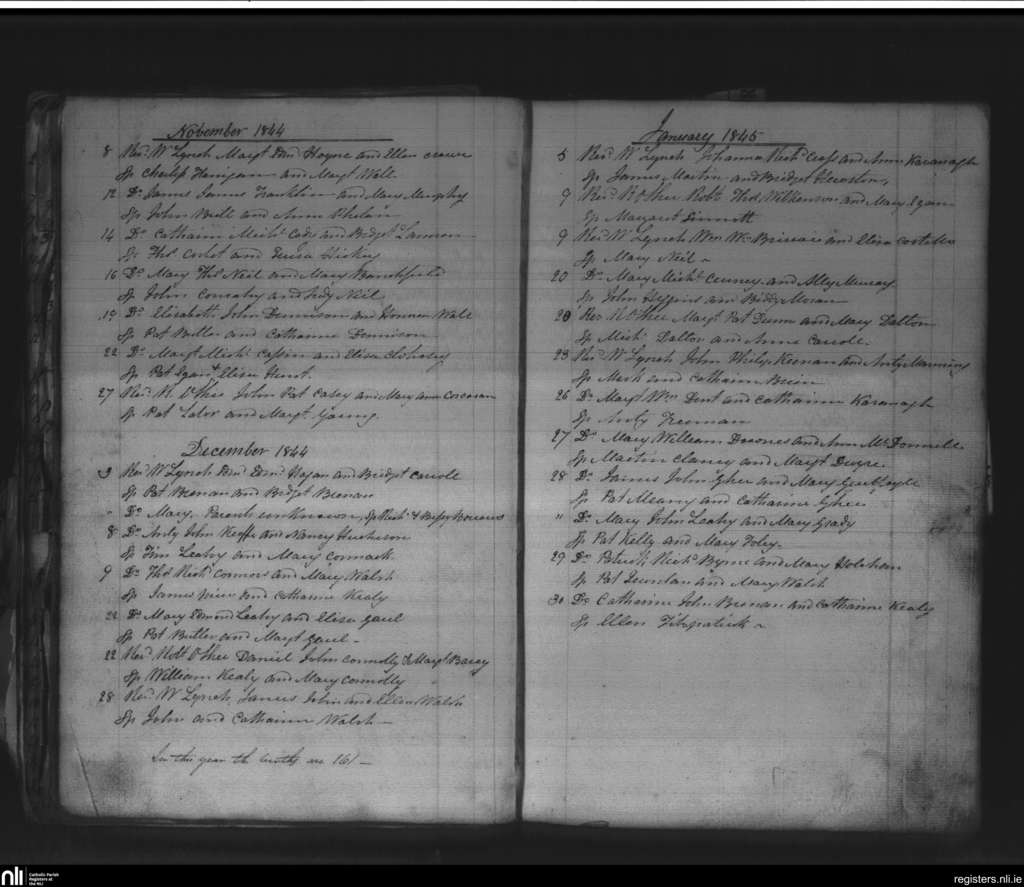 November 1844
8 Revd W Lynch Margt Edmd Hayne and Ellen crowe
Sp Charles Hanigan and Margt Wall
12 Do James James Franklin and Mary Murphy
Sp John Bull and Anne Phelan
14 Do Catharine Michl Cody and Bridgt Lannon
Sp Thos Corbet and Hickey
16 Do Mary Thos Neil and Mary
Sp John and Judy Neil
19 Do Elisabeth John Dennison and Honnon Wall
Sp Pat Butler and Catharine Dennison
22 Do Margt Michl Cassin and Elisa
Sp Pat Egan & Elisa Hunt
27 Revd R OShee John Pat Casey and Mary ann Corcoran
Sp Pat Lalor and Margt Young
December 1844
3 Revd W Lynch Edmd Edmd Hagan and Bridget Carroll
Sp Pat Brenan and Bridgt Brenan
" Do Mary. Parents unknown, Sp
8 Do Andy John Keeffe and Nancy
Sp Tim Leahy and Mary Cormack
9 Do Thos Richd Connors and Mary Walsh
Sp James and Catharine Kealy
22 Do Mary Edmond Leahy and Elisa Gaul
Sp Pat Butler and Margt Gaul -
22 Revd OShee Daniel John Connolly & Margt
Sp William Kealy and Mary Connolly
28 Revd W Lynch James John and Ellen Walsh
Sp John and Catharine Walsh -
In this year the births are 161 -
January 1845
5 Revd W Lynch Johanna Richd and Anne Kavanagh
Sp James Martin and Bridget
9 Revd R OShee Robt Thos Wilkenson and Mary Egan
Sp Margaret Sinnott
9 Revd W Lynch Wm Wm and Elisa Costillo
Sp Mary Neil -
20 Do Mary Michl and Alley Murray
Sp John Higgins and Biddy Moran
20 Rev R OShee Margt Pat Dunn and Mary Dalton
Sp Michl Dalton and Anne Carroll.
23 Revd W Lynch John Philip Keenan and Anty Manning
Sp Mark and Catharine Brien
26 Do Margt Wm Dent and Catharine Kavanagh
Sp Anty Freeman
27 Do Mary William and Ann Mc Donnell
Sp Martin Clancy and Margt Dwyre.
28 Do James John Ghee and Mary
Sp Pat Meany and Catharine Ghee
" Do Mary John Leahy and Mary Grady
Sp Pat Kelly and Mary Foley.
29 Do Patrick Richd Byrne and Mary Holohan
Sp Pat and Mary Walsh
30 Do Catharine John Brenan and Catharine Kealy
Sp Ellen Fitzpatrick -
nli
Catholic Parish
Registers at
the NLI
registers.nli.ie